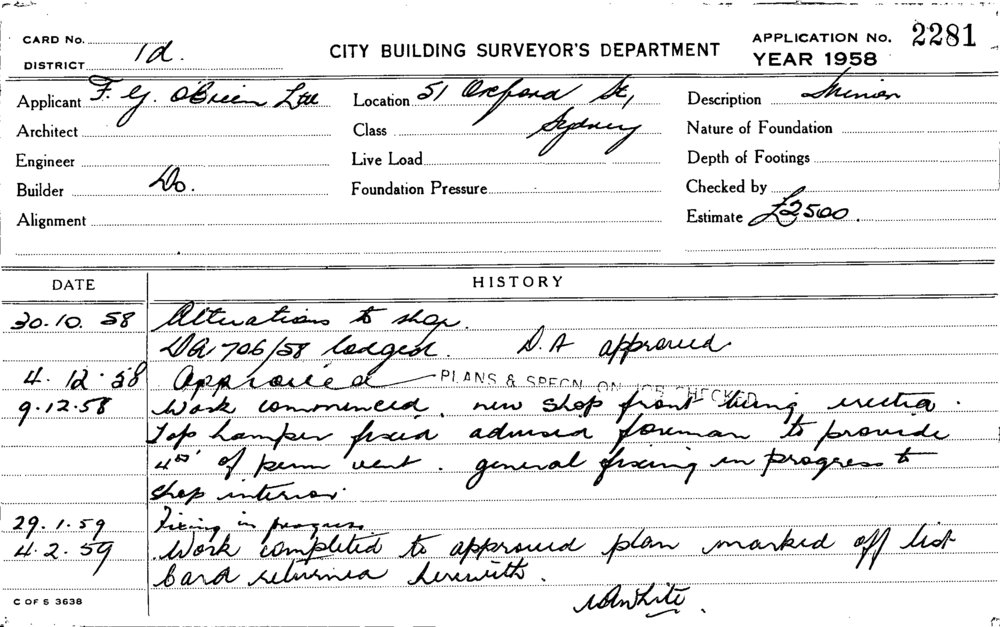 CARD No.
DISTRICT 1d.
CITY BUILDING SURVEYOR'S DEPARTMENT
APPLICATION No. 2281
YEAR 1958
Applicant F. G. O'Brien Ltd Location 51 Oxford St, Description Minor
Architect Class Sydney Nature of Foundation
Engineer Live Load Depth of Footings
Builder Do. Foundation Pressure Checked by
Alignment Estimate £2500.
DATE HISTORY
30.10.58 Alterations to shop.
DA 706/58 lodged. D.A approved.
4.12.58 Approved PLANS & SPECN ON JOB CHECKED
9.12.58 Work commenced. new shop front being erected.
Top hamper fixed advised foreman to provide
4" of perm vent. general fixing in progress to
shop interior.
29.1.59 Fixing in progress
4.2.59 Work completed to approved plan marked off list
Card returned herewith.
White.
C OF S 3638